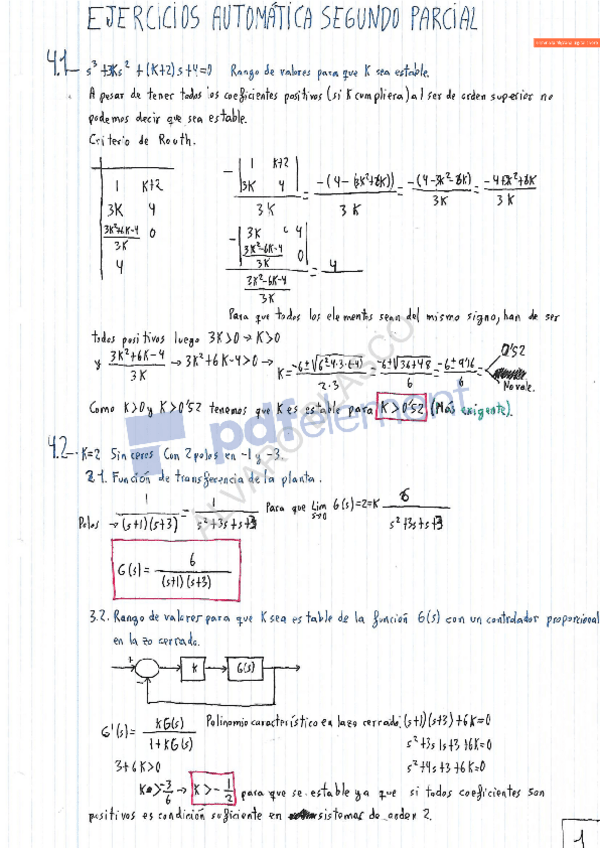 EJERCICIOS AUTOMÁTICA SEGUNDO PARCIAL
4.1- s³+3Ks²+(K+2)s+4=0 Rango de valores para que K sea estable.
A pesar de tener todos los coeficientes positivos (si K cumpliera) al ser de orden superior no
podemos decir que sea estable.
Criterio de Routh.
1 K+2
3K 4
3K²+6K-4 / 3K 0
4
-|1 K+2| |3K 4| / 3K = -(4-(3K²+6K)) / 3K = -(4-3K²-6K) / 3K = -4+3K²+6K / 3K
-|3K 4| |3K²-6K-4 / 3K 0| / 3K²-6K-4 / 3K = 4
Para que todos los elementos sean del mismo signo, han de ser
todos positivos luego 3K>0 → K>0
y 3K²+6K-4 / 3K → 3K²+6K-4>0 → K= -6±√6²4·3·(-4) / 2·3 = -6±√36+48 / 6 = -6±9'16 / 6 0'52 No vale.
Como K>0 y K>0'52 tenemos que K es estable para K>0'52 (Más exigente).
4.2- K=2 Sin ceros Con 2 polos en -1 y -3.
2.1. Función de transferencia de la planta.
Polos → 1 / (s+1)(s+3) = 1 / s²+3s+s+3 Para que Lim s→0 G(s)=2=K 6 / s²+3s+s+3
G(s)= 6 / (s+1)(s+3)
3.2. Rango de valores para que K sea estable de la función G(s) con un controlador proporcional
en lazo cerrado.
+ - K G(s)
G'(s)= KG(s) / 1+KG(s) Polinomio característico en lazo cerrado. (s+1)(s+3)+6K=0
s²+3s+s+3+6K=0
3+6K>0 s²+4s+3+6K=0
K>-3/6 → K>-1/2 para que se estable ya que si todos coeficientes son
positivos es condición suficiente en sistemas de orden 2.
1
pdfelement